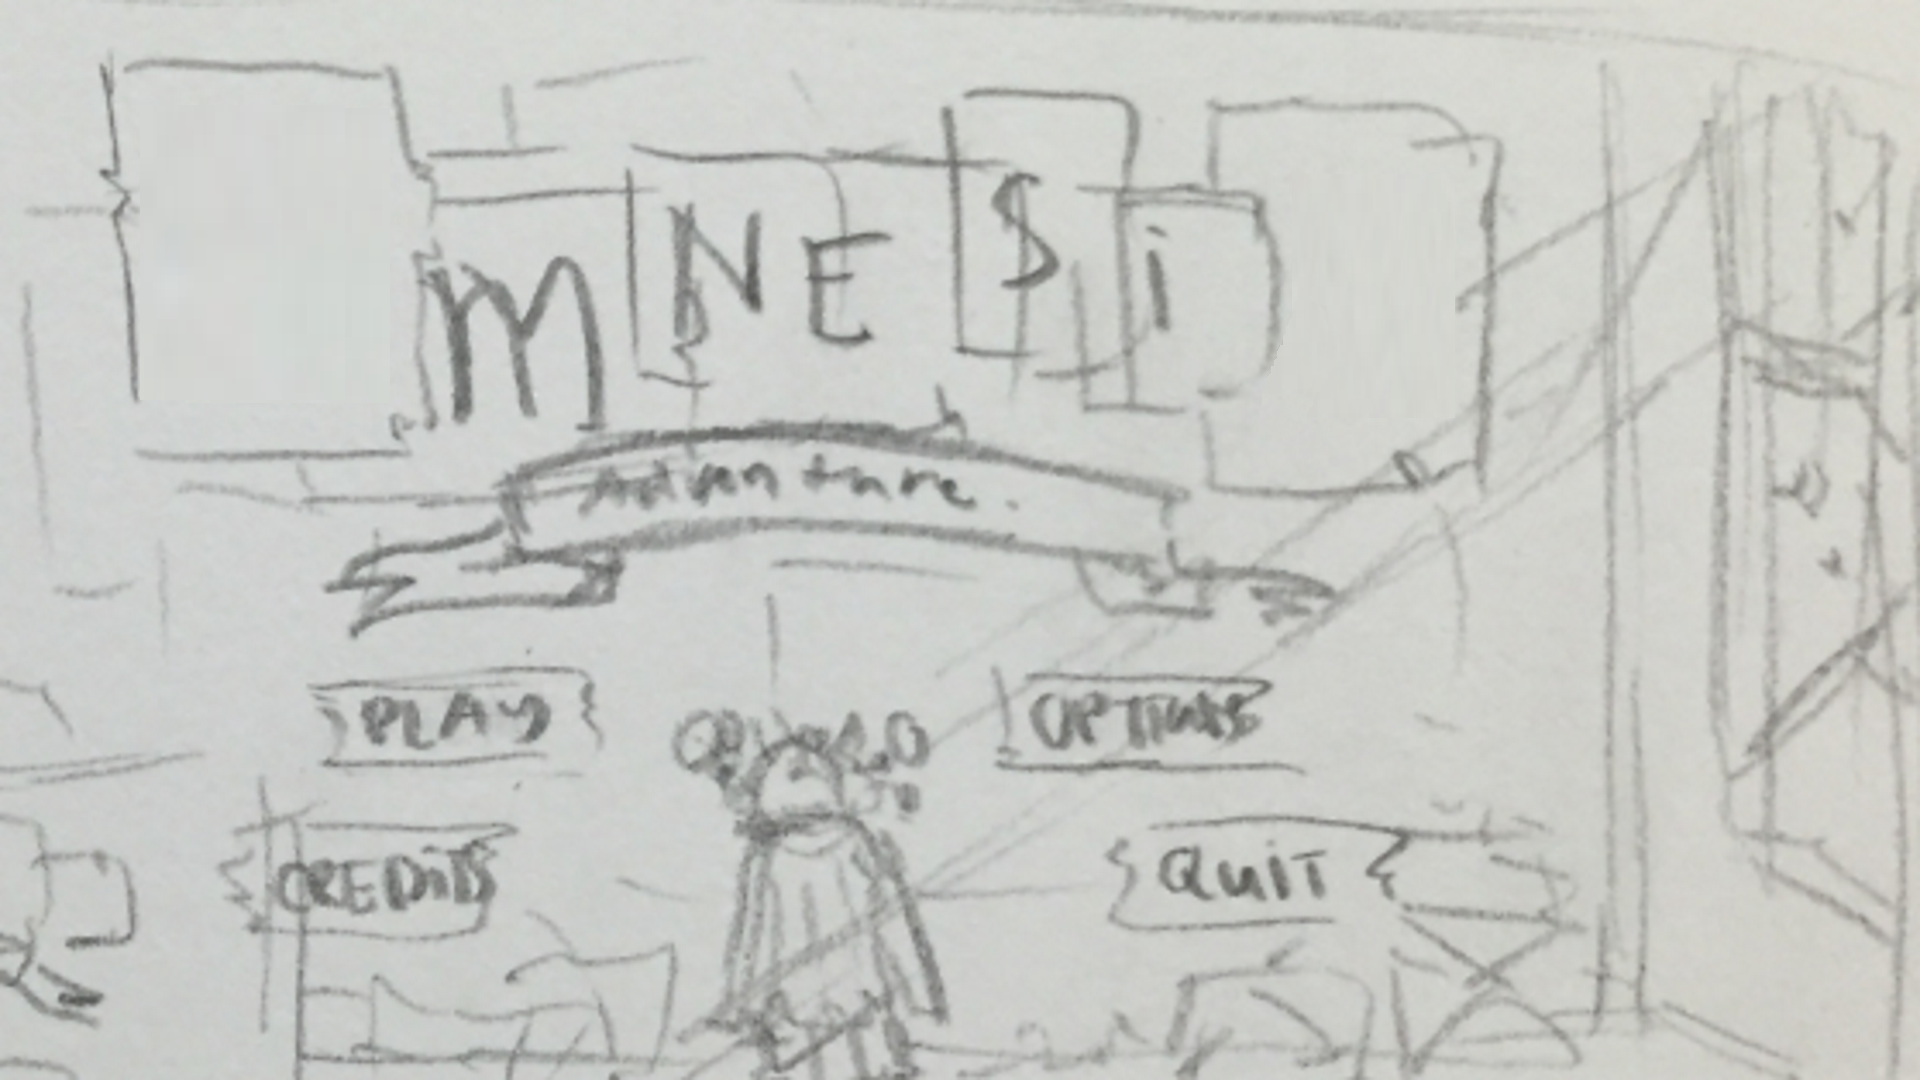 mNESi
Adventure.
PLAY
OPTIONS
CREDITS
QUIT